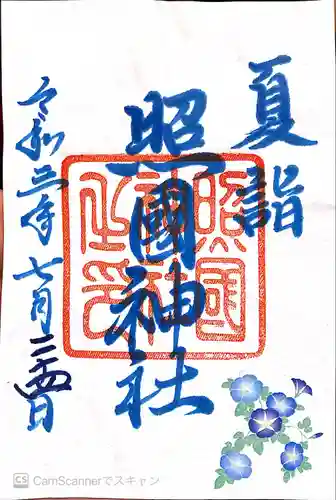 夏詣
照國神社
令和三年七月二十四日
照國神社之印
CS CamScannerでスキャン